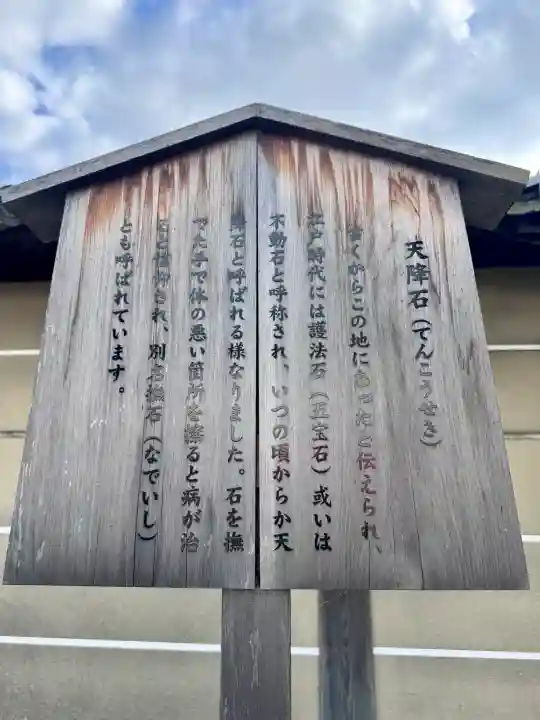 天降石(てんこうせき)
古くからこの地にあったと伝えられ、
江戸時代には護法石(五宝石)或いは
不動石と呼称され、いつの頃からか天
降石と呼ばれる様なりました。石を撫
でた手で体の悪い箇所を擦ると病が治
ると信仰され、別名撫石(なでいし)
とも呼ばれています。